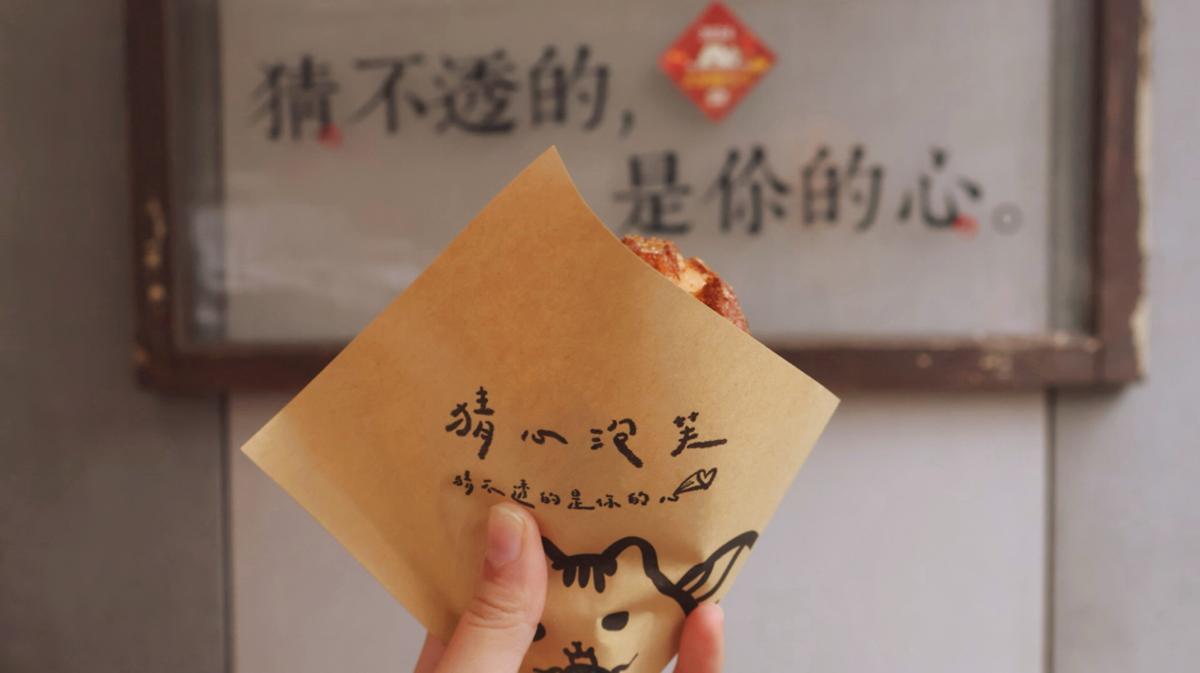 猜不透的，
是你的心。
猜心没笑
猜不透的是你的心